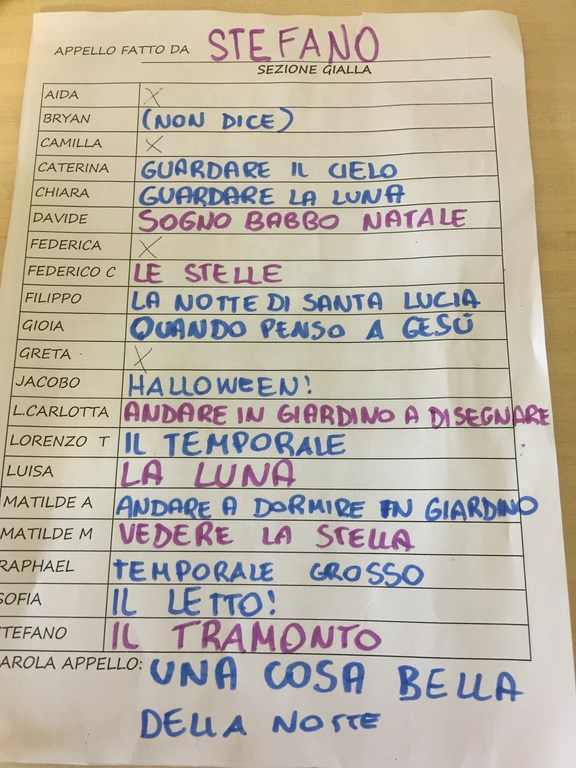 APPELLO FATTO DA STEFANO
SEZIONE GIALLA
AIDA X
BRYAN (NON DICE)
CAMILLA X
CATERINA GUARDARE IL CIELO
CHIARA GUARDARE LA LUNA
DAVIDE SOGNO BABBO NATALE
FEDERICA X
FEDERICO C LE STELLE
FILIPPO LA NOTTE DI SANTA LUCIA
GIOIA QUANDO PENSO A GESÚ
GRETA X
JACOBO HALLOWEEN!
L.CARLOTTA ANDARE IN GIARDINO A DISEGNARE
LORENZO T IL TEMPORALE
LUISA LA LUNA
MATILDE A ANDARE A DORMIRE IN GIARDINO
MATILDE M VEDERE LA STELLA
RAPHAEL TEMPORALE GROSSO
SOFIA IL LETTO!
TEFANO IL TRAMONTO
AROLA APPELLO: UNA COSA BELLA
DELLA NOTTE